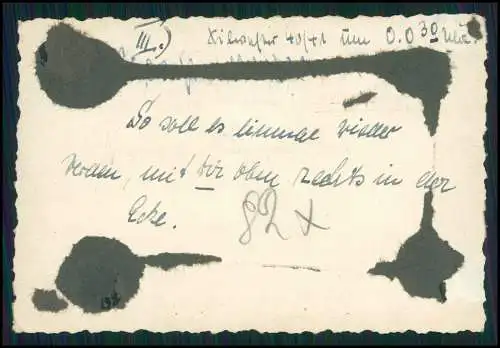 III.) Silvester 40/41 um 0.0 30 Uhr.
So soll es einmal wieder
werden, mit Dir oben rechts in der
Ecke.
82 x